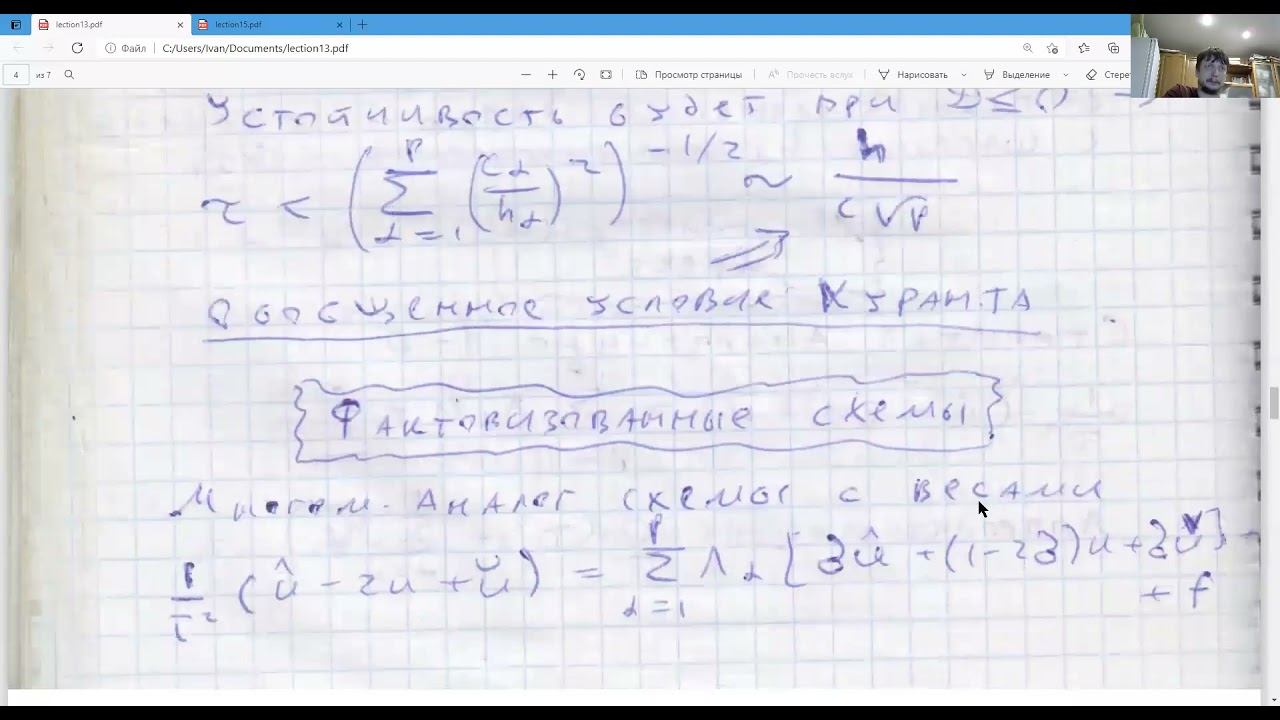 lection13.pdf
lection15.pdf
Файл
C:/Users/Ivan/Documents/lection13.pdf
4 из 7
Просмотр страницы
Прочесть вслух
Нарисовать
Выделение
Стерет
Устойчивость будет при
τ < (∑_{α=1}^{p} (c_α/h_α)^2)^{-1/2} ~ h/(c√p)
Обобщенное условие Куранта
Факторизованные схемы
Многом. аналог схемы с весами
1/τ² (û - 2u + ǔ) = ∑_{α=1}^{p} Λ_α [σû + (1-2σ)u + σǔ] + f